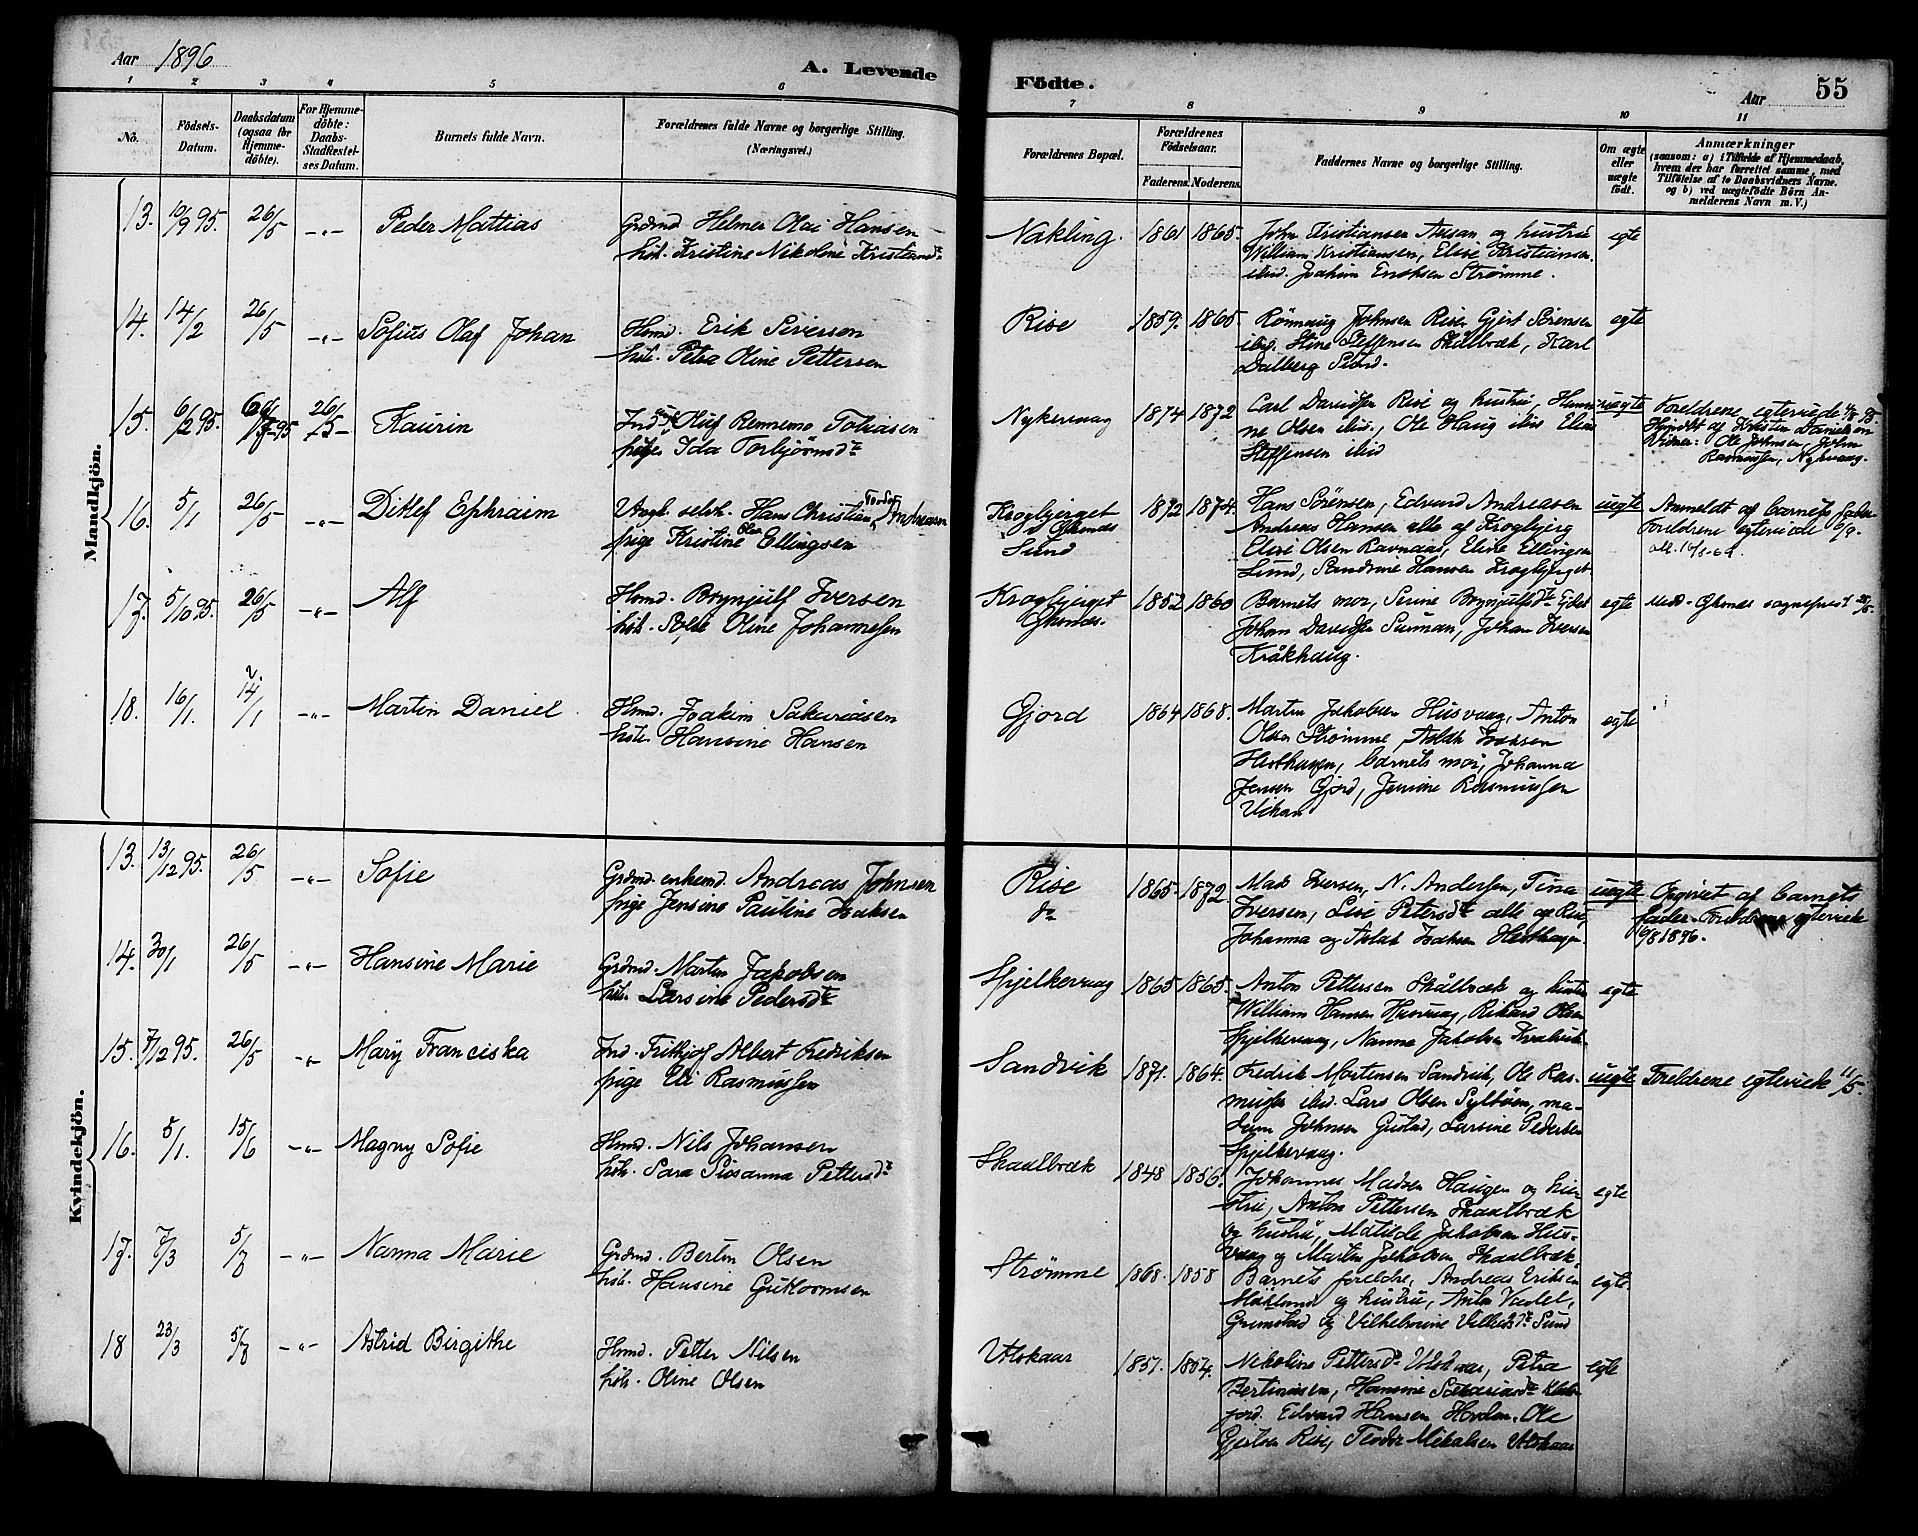 Aar 1896
A. Levende
Födte.
Aar
55
1 2 3 4 5 6 7 8 9 10 11
Nö.
Födsels-Datum.
Daabsdatum (ogsaa for Hjemme-döbte).
For Hjemme-döbte: Daabs-Stadfæstel-ses Datum.
Barnets fulde Navn.
Forældrenes fulde Navne og borgerlige Stilling.
(Næringsvei.)
Forældrenes Bopæl.
Forældrenes Födselsaar.
Faderens. Moderens.
Faddernes Navne og borgerlige Stilling.
Om ægte eller uægte födt.
Anmærkninger
(saasom: a) i Tilfælde af Hjemmedaab,
hvem der har forrettet samme, med
Tilföielse af to Daabsvidners Navne,
og b) ved uægtefödte Börn An-
melderens Navn m. V.)
Mandkjön.
13. 10/9 95. 26/5 -"- Peder Mattias
Grdmd. Helmer Olai Hansen
hst. Kristine Nikoline Kristiansd
Nakling. 1861 1865.
John Kristiansen Ausan og hustru
William Kristiansen, Elise Kristiansen
ibid. Joakim Enoksen Strømme.
egte
14. 14/2 26/5 -"- Sofius Olaf Johan
Hmd. Erik Sivertsen
hst. Petra Oline Pettersen
Rise 1859. 1865.
Rönnaug Johnsen Rise, Gjert Sörensen
ibid. Stine Steffensen Skålbræk, Karl
Dalberg Sund.
egte
15. 6/2 95. 26/5 Kaurin
Ind. Oluf Rennemo Tobiasen
pige Ida Torbjörnsd
Nykervaag 1874 1872
Carl Davidsen Rise og hustru, Hansi-
ne Olsen ibid., Ole Haug ibid Elise
Steffensen ibid
uegte
Foreldrene egteviede 95.
Hjmdbt af Kristen Danielsen
Vidner: Ole Johnsen, John
Rasmussen, Nykvaag.
16. 5/1 26/5 -"- Ditlef Ephraim
Ungk. selvst. Hans Christian Andreasen
pige Kristine Ellingsen
Krogbjerget
Öksnes
Sund
1872 1874.
Hans Sörensen, Edvard Andreasen
Andreas Hansen alle af Krogbjerg
Elise Olsen Ravnaas, Elise Ellingsen
Sund, Sandrine Hansen Krogbjerget
uegte
Anmeldt af barnets fader
Foreldrene egteviede 6/9.
17. 5/10 95. 26/5 -"- Alf
Hmd. Brynjulf Iversen
hst. Oline Johannesen
Krogbjerget
Öksnes.
1852 1860
Barnets mor, Serine Brynjulfsd
Johan Davidsen Surman, Johan Iversen
Kråkhaug.
egte
Medd. Öksnes sogneprest
18. 16/1 14/1 -"- Martin Daniel
Hmd. Joakim Sakariasen
hst. Hansine Hansen
Gjord 1864 1868.
Martin Jakobsen Husvaag, Anton
Olsen Strømme, Aslak Isaksen
Hesthagen, barnets mor, Johanna
Jensen Gjord, Jensine Rasmussen
Vikan
egte
Kvindekjön.
13. 13/12 95. 26/5 -"- Sofie
Grdmd. enkemd. Andreas Johnsen
pige Jensine Pauline Isaksen
Rise
do
1865. 1872.
Mads Iversen, N. Andersen, Tina
Iversen, Lise Petersd alle af Rise,
Johanna og Aslak Isaksen Hesthagen.
uegte
Opgivet af barnets
fader. Foreldrene egteviede
16/8 1896.
14. 30/1 26/5 -"- Hansine Marie
Grdmd. Martin Jakobsen
hst. Larsine Pedersd
Spjelkervaag 1865 1865.
Anton Pettersen Skålbræk og hustru
William Hansen Husvaag, Rikard Olsen
Spjelkervaag, Nanna Jakobsen
egte
15. 7/12 95. 26/5 -"- Mary Franciska
Ind. Fritkjof Albert Fredriksen
pige Rasmussen
Sandvik 1871. 1864.
Fredrik Mortensen Sandvik, Ole Ras-
mussen ibid. Lars Olsen Sylböen, ma-
dam Johnsen Gustad, Larsine Pedersen
Spjelkervaag.
uegte
Foreldrene egteviede 11/5.
16. 5/1. 15/6 -"- Magny Sofie
Hmd. Nils Johansen
hst. Sara Susanna Pettersd
Skaalbræk 1848 1856.
Johannes Madsen Haugen og hus-
tru, Anton Pettersen Skaalbræk
og hustru, Matilde Jakobsen Hus-
vaag og Martin Jakobsen Skaalbræk.
egte
17. 7/3 5/7 -"- Nanna Marie
Grdmd. Bertin Olsen
hst. Hansine Guttormsen
Strömme 1868. 1858
Barnets foreldre, Andreas Eriksen
og hustru, Anton
Grimstad og Vilhelmine Sund
egte.
18 23/3 5/7 -"- Astrid Birgithe
Hmd. Petter Nilsen
hst. Oline Olsen
Utskaar 1857.
Nikoline Pettersd Utskaar, Petra
Bertinusen, Hansine Sakariasd
fjord. Edvard Hansen Hovden. Ole
Gjertsen Rise, Teodor Mikalsen Utskaar
egte